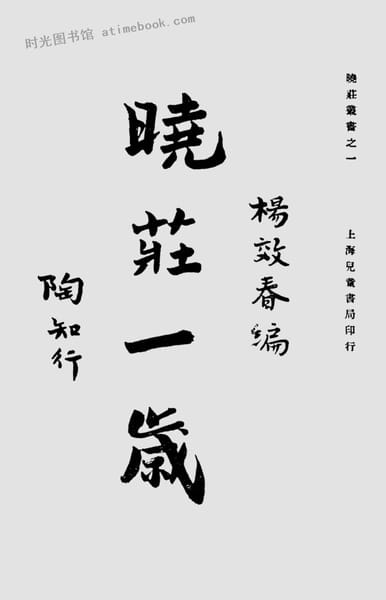 时光图书馆 atimebook.com
曉莊叢書之一
上海兒童書局印行
楊效春編
曉莊一歲
陶知行